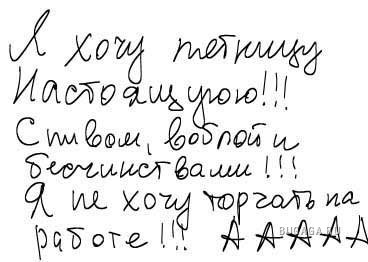 Я хочу пятницу
Настоящую!!!
С пивом, воблой и
бесчинствами!!!
Я не хочу торчать на
работе!!! А А А А А
BUGAGA.RU